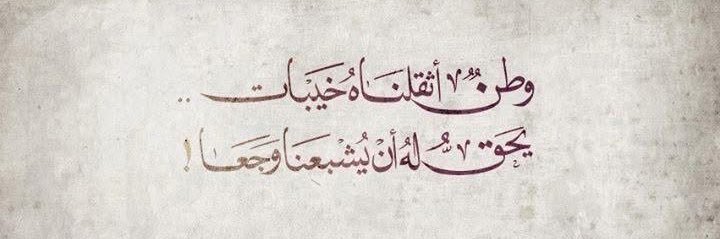 وطنٌ أثقلناهُ خيَبات ..
يحقُّ لهُ أنْ يُشبعَنا وجَعاً !